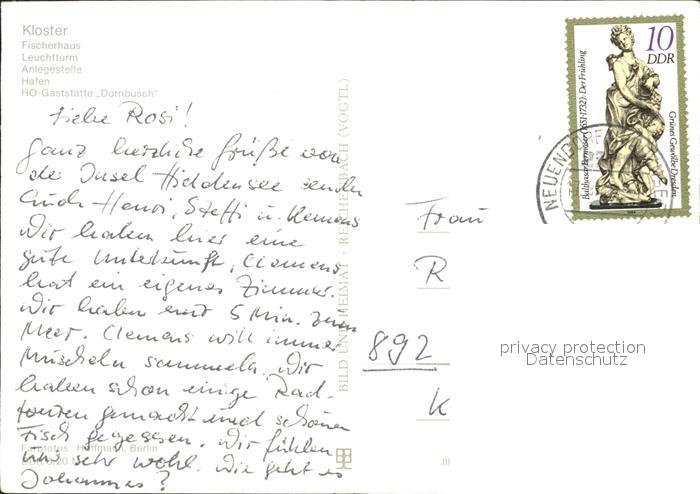 Kloster
Fischerhaus
Leuchtturm
Anlegestelle
Hafen
HO-Gaststätte „Dornbusch"
Liebe Rosi!
Ganz herzliche Grüße von
der Insel Hiddensee senden
Euch Henri, Steffi u. Klemens
Wir haben hier eine
gute Unterkunft, Clemens
hat ein eigenes Zimmer.
Wir haben nur 5 Min. zum
Meer. Clemens will immer
Muscheln sammeln. Wir
haben schon einige Rad-
touren gemacht und schönen
Fisch gegessen. Wir fühlen
uns sehr wohl. Wie geht es
Johannes?
Farbfotos: Hoffmann, Berlin
BILD UND HEIMAT · REICHENBACH (VOGTL)
III
10
DDR
Balthasar Permoser (1651-1732): Der Frühling
Grünes Gewölbe Dresden
1984
NEUENDORF
Frau
R
892
K
privacy protection
Datenschutz